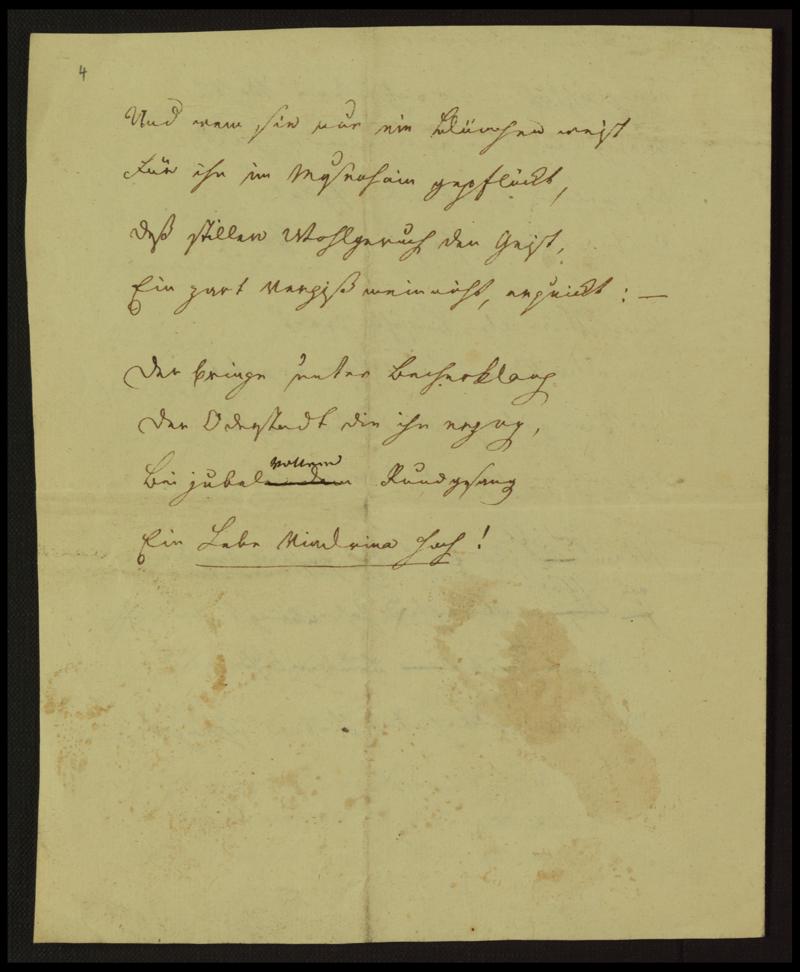 4
Und wem sie nur ein Blümchen weist
Für ihn im Musenhain gepflückt,
Deß stiller Wohlgeruch den Geist,
Ein zart Vergiß mein nicht, erquickt: —
Der bringe unter Becherklang
Der Oderstadt die ihn erzog,
vollem
Bei jubelndem Rundgesang
Ein Lebe Viadrina hoch!